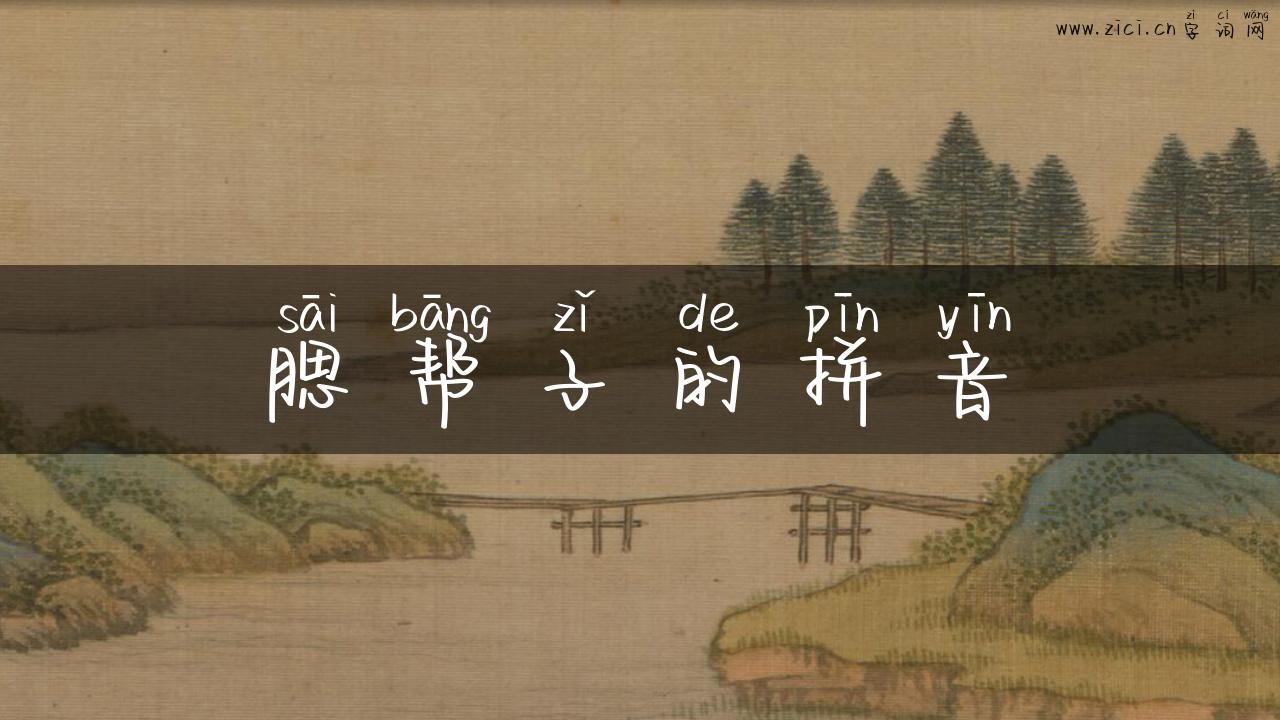 zì cí wǎng
www.zici.cn 字词网
sāi bāng zǐ de pīn yīn
腮帮子的拼音